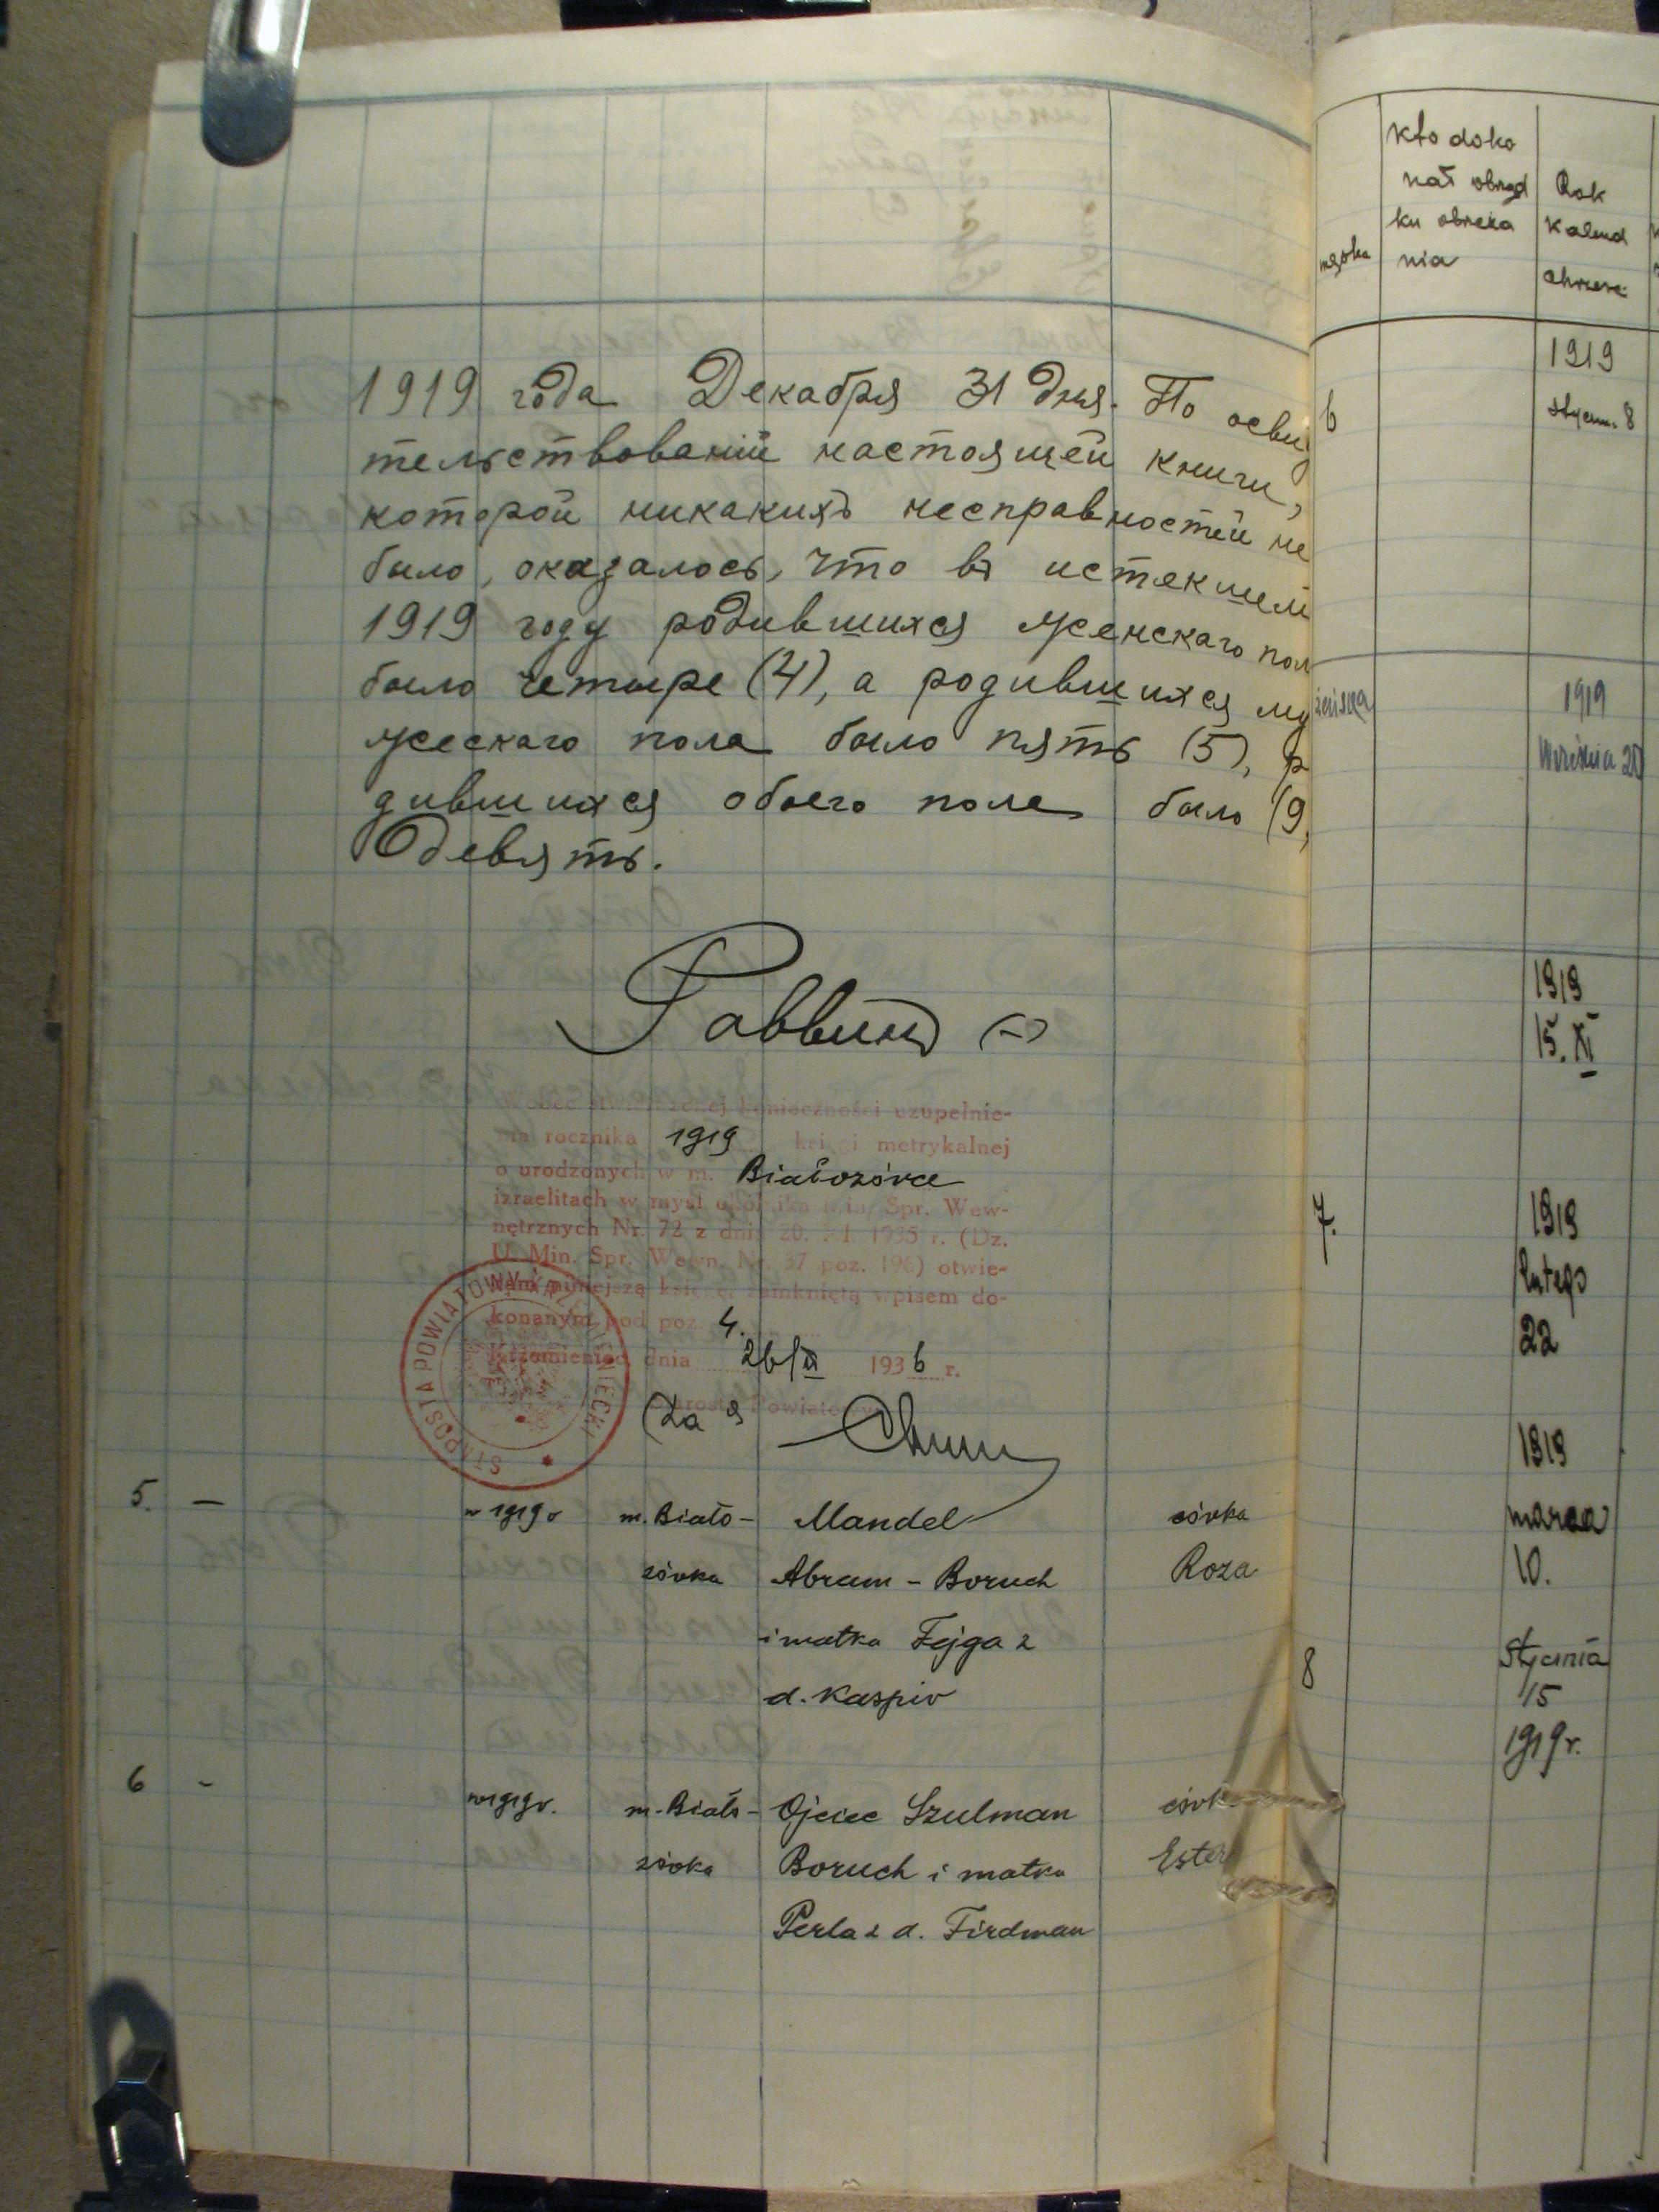 1919 года Декабря 31 дня. По осви
тельствованiи настоящей книги,
которой никакихъ несправностей не
было, оказалось, что въ истекшем
1919 году родившихся женскаго пол
было четыре (4), а родившихся му
жескаго пола было пять (5), р
дившихся обоего пола было (9,
девять.
Раввинъ (-)
konieczności uzupełnie-
nia rocznika 1919 księgi metrykalnej
o urodzonych w m. Białozórce
izraelitach w myśl okólnika Min. Spr. Wew-
nętrznych Nr. 72 z dnia 20. XI. 1935 r. (Dz.
U. Min. Spr. Wewn. Nr. 37 poz. 196) otwie-
ram niniejszą księgę, zamkniętą wpisem do-
konanym pod poz. 4.
Krzemieniec, dnia 26/ 1936 r.
Starosta Powiatowy
(za
STAROSTA POWIATOWY KRZEMIENIECKI
5. — w 1919 r m. Biało- Mandel córka
zórka Abram - Boruch Roza
i matka Fejga z
d. Kaspiv
6 - w 1919 r. m. Biało- Ojciec Szulman córk
zórka Boruch i matka Ester
Perla z d. Firdman
męska
Kto doko
nał obrząd
ku obrzeza
nia
Rok
Kalend
chrześc.
6 1919
stycz. 8
żeńska 1919
Września 20
1919
15. XI
7. 1919
lutego
22
1919
marca
10.
8 Stycznia
15
1919 r.